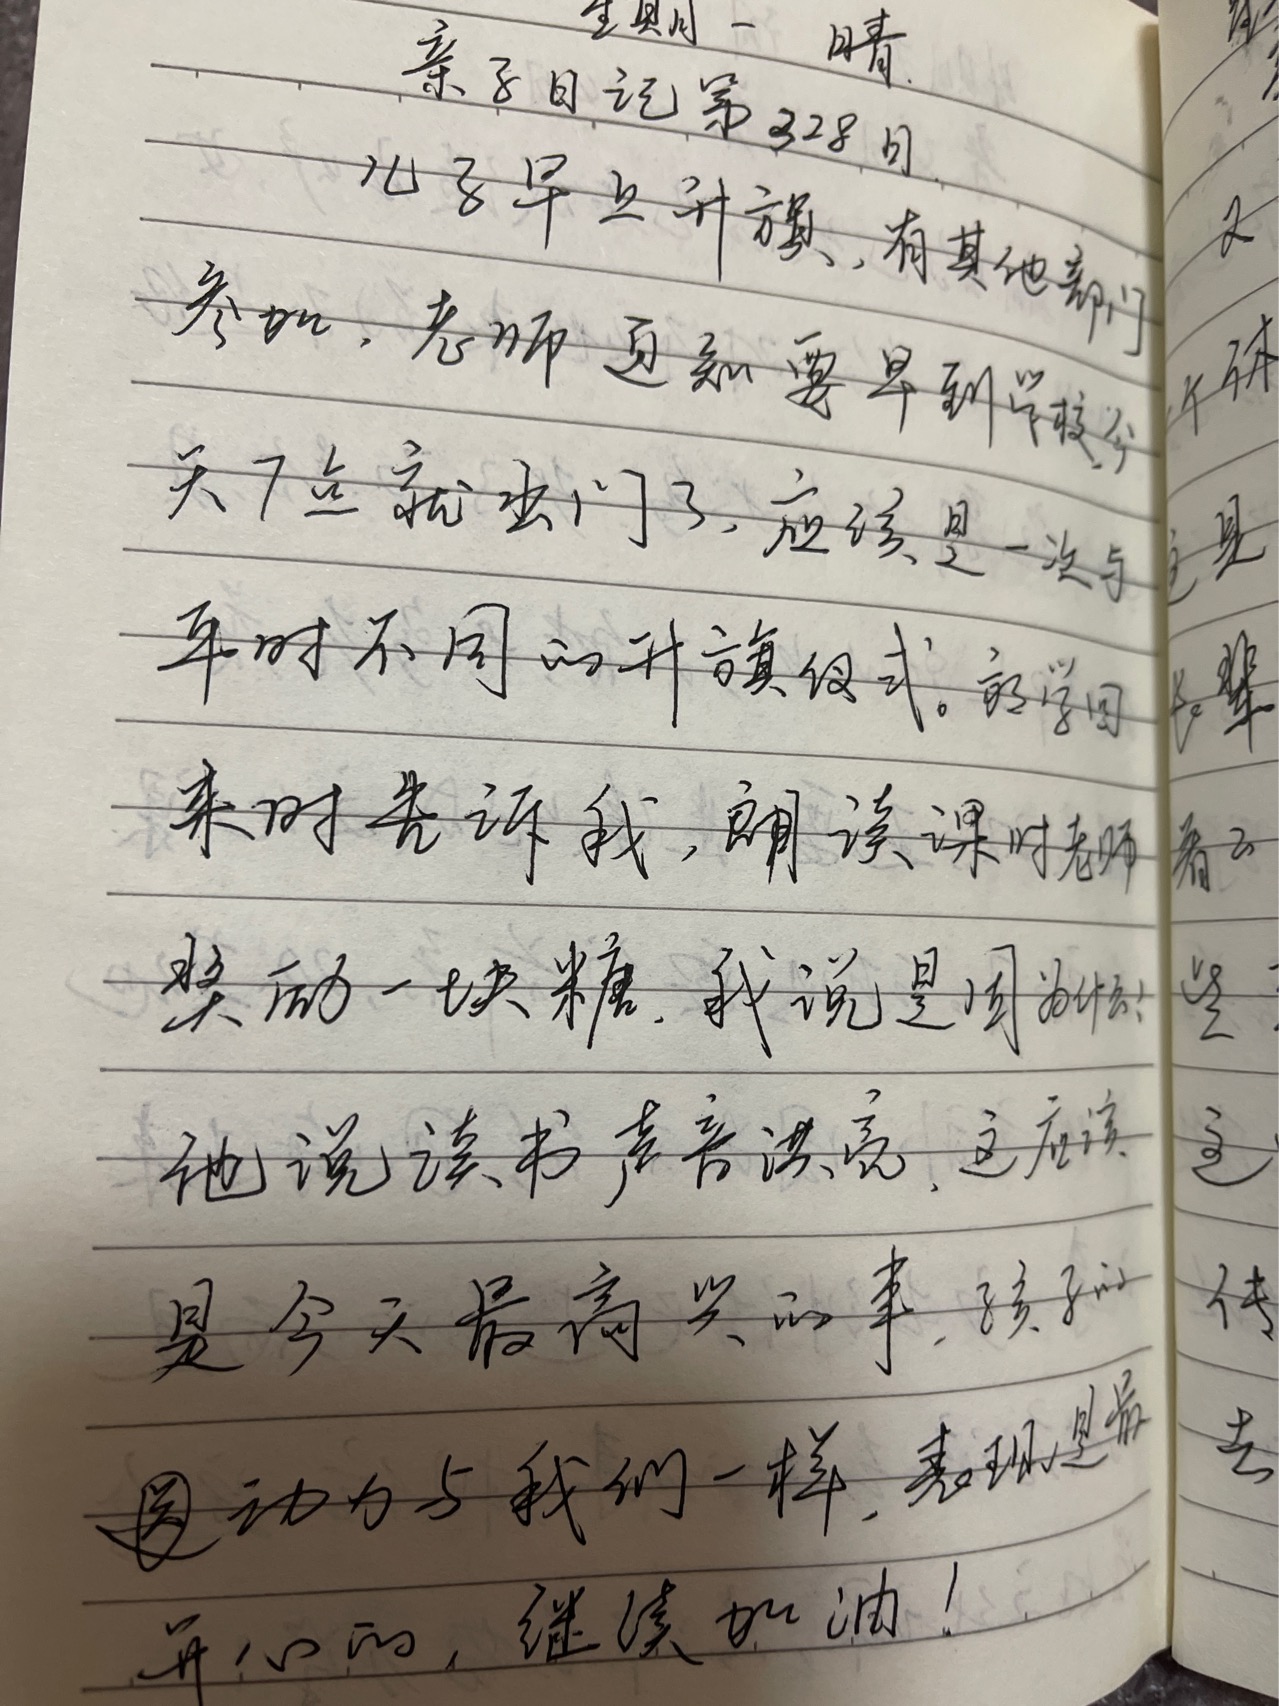 星期一 晴.
亲子日记第328日.
儿子早上升旗，有其他部门
参加，老师通知要早到学校，今
天7点就出门了，应该是一次与
平时不同的升旗仪式。放学回
来时告诉我，朗读课时老师
奖励一块糖，我说是因为什么！
他说读书声音洪亮，这应该
是今天最高兴的事，孩子的
动力与我们一样，表现是最
开心的，继续加油！
又
是
辈
着
些
这
传
去